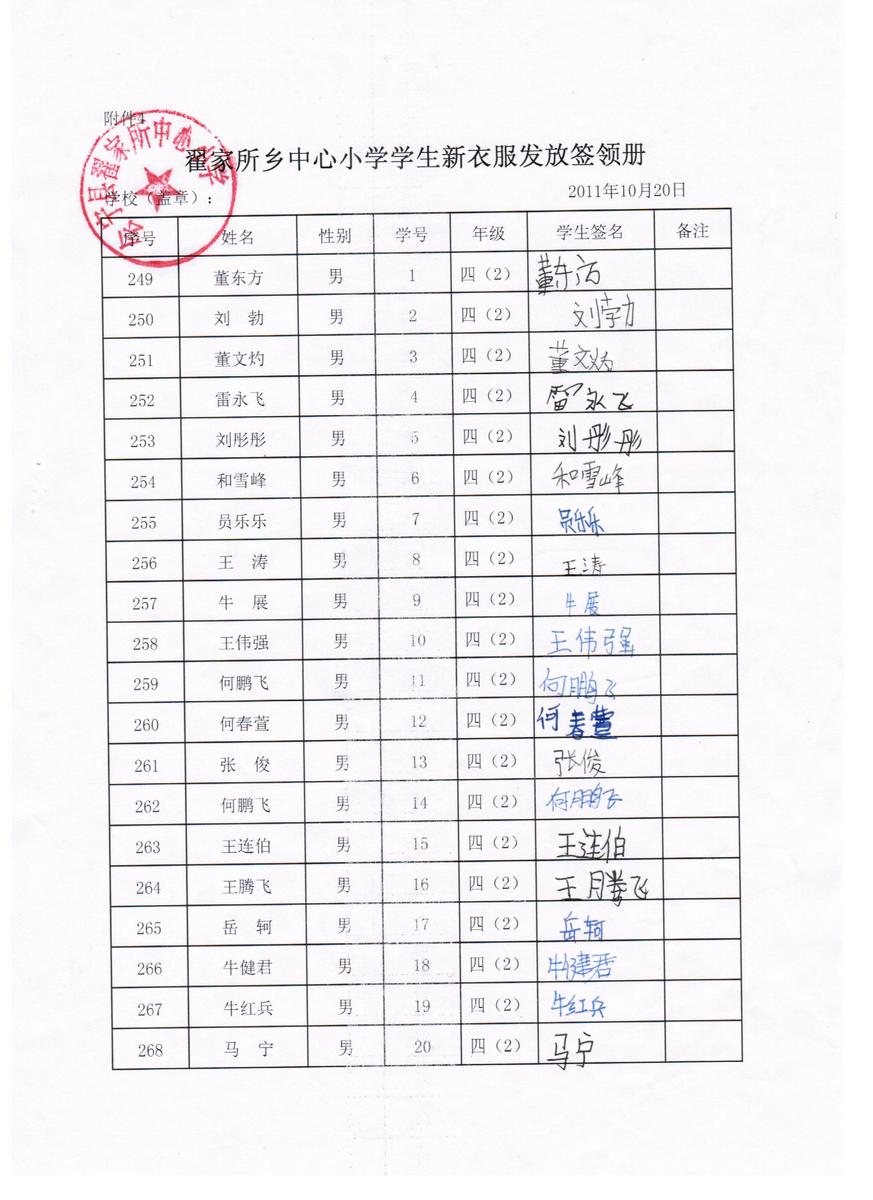 附件4
翟家所乡中心小学学生新衣服发放签领册
学校（盖章）： 2011年10月20日
会宁县翟家所中心小学
序号 姓名 性别 学号 年级 学生签名 备注
249 董东方 男 1 四（2） 董东方
250 刘 勃 男 2 四（2） 刘勃
251 董文灼 男 3 四（2） 董文灼
252 雷永飞 男 4 四（2） 雷永飞
253 刘彤彤 男 5 四（2） 刘彤彤
254 和雪峰 男 6 四（2） 和雪峰
255 员乐乐 男 7 四（2） 员乐乐
256 王 涛 男 8 四（2） 王涛
257 牛 展 男 9 四（2） 牛展
258 王伟强 男 10 四（2） 王伟强
259 何鹏飞 男 11 四（2） 何鹏飞
260 何春萱 男 12 四（2） 何春萱
261 张 俊 男 13 四（2） 张俊
262 何鹏飞 男 14 四（2） 何鹏飞
263 王连伯 男 15 四（2） 王连伯
264 王腾飞 男 16 四（2） 王腾飞
265 岳 轲 男 17 四（2） 岳轲
266 牛健君 男 18 四（2） 牛健君
267 牛红兵 男 19 四（2） 牛红兵
268 马 宁 男 20 四（2） 马宁